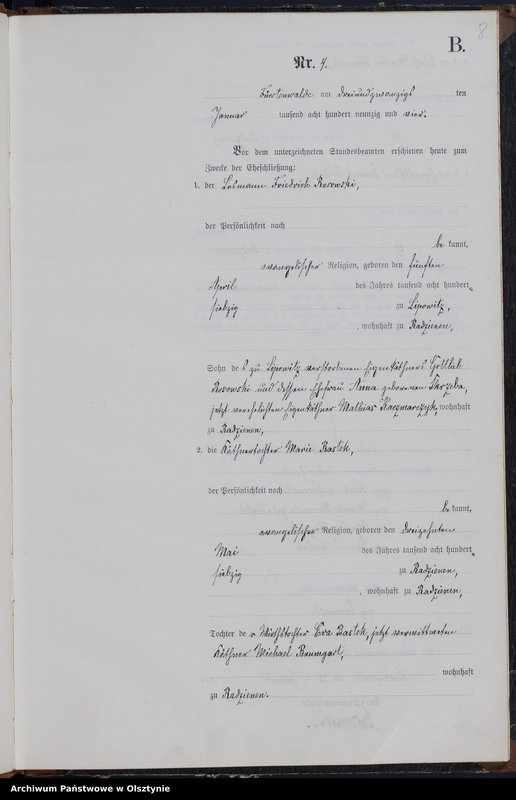 8
B.
Nr. 4.
Fürstenwalde am dreiundzwanzigs ten
Januar tausend acht hundert neunzig und vier.
Vor dem unterzeichneten Standesbeamten erschienen heute zum
Zwecke der Eheschließung:
1. der Losmann Friedrich Rosowski,
der Persönlichkeit nach
be kannt,
evangelischer Religion, geboren den fünften
April des Jahres tausend acht hundert
siebzig zu Lipowitz,
, wohnhaft zu Radzienen,
Sohn des zu Lipowitz verstorbenen Eigenkäthners Gottlieb
Rosowski und dessen Ehefrau Anna geborenen
jetzt verehelichten Eigenkäthner Mathias Kaczmarczyk, wohnhaft
zu Radzienen,
2. die Käthnertochter Marie Bastek,
der Persönlichkeit nach
be kannt,
evangelischer Religion, geboren den dreizehnten
Mai des Jahres tausend acht hundert
siebzig zu Radzienen,
, wohnhaft zu Radzienen,
Tochter der Wirthstochter Eva Bastek, jetzt verwittweten
Käthner Michael Baumgart,
wohnhaft
zu Radzienen.
Archiwum Państwowe w Olsztynie